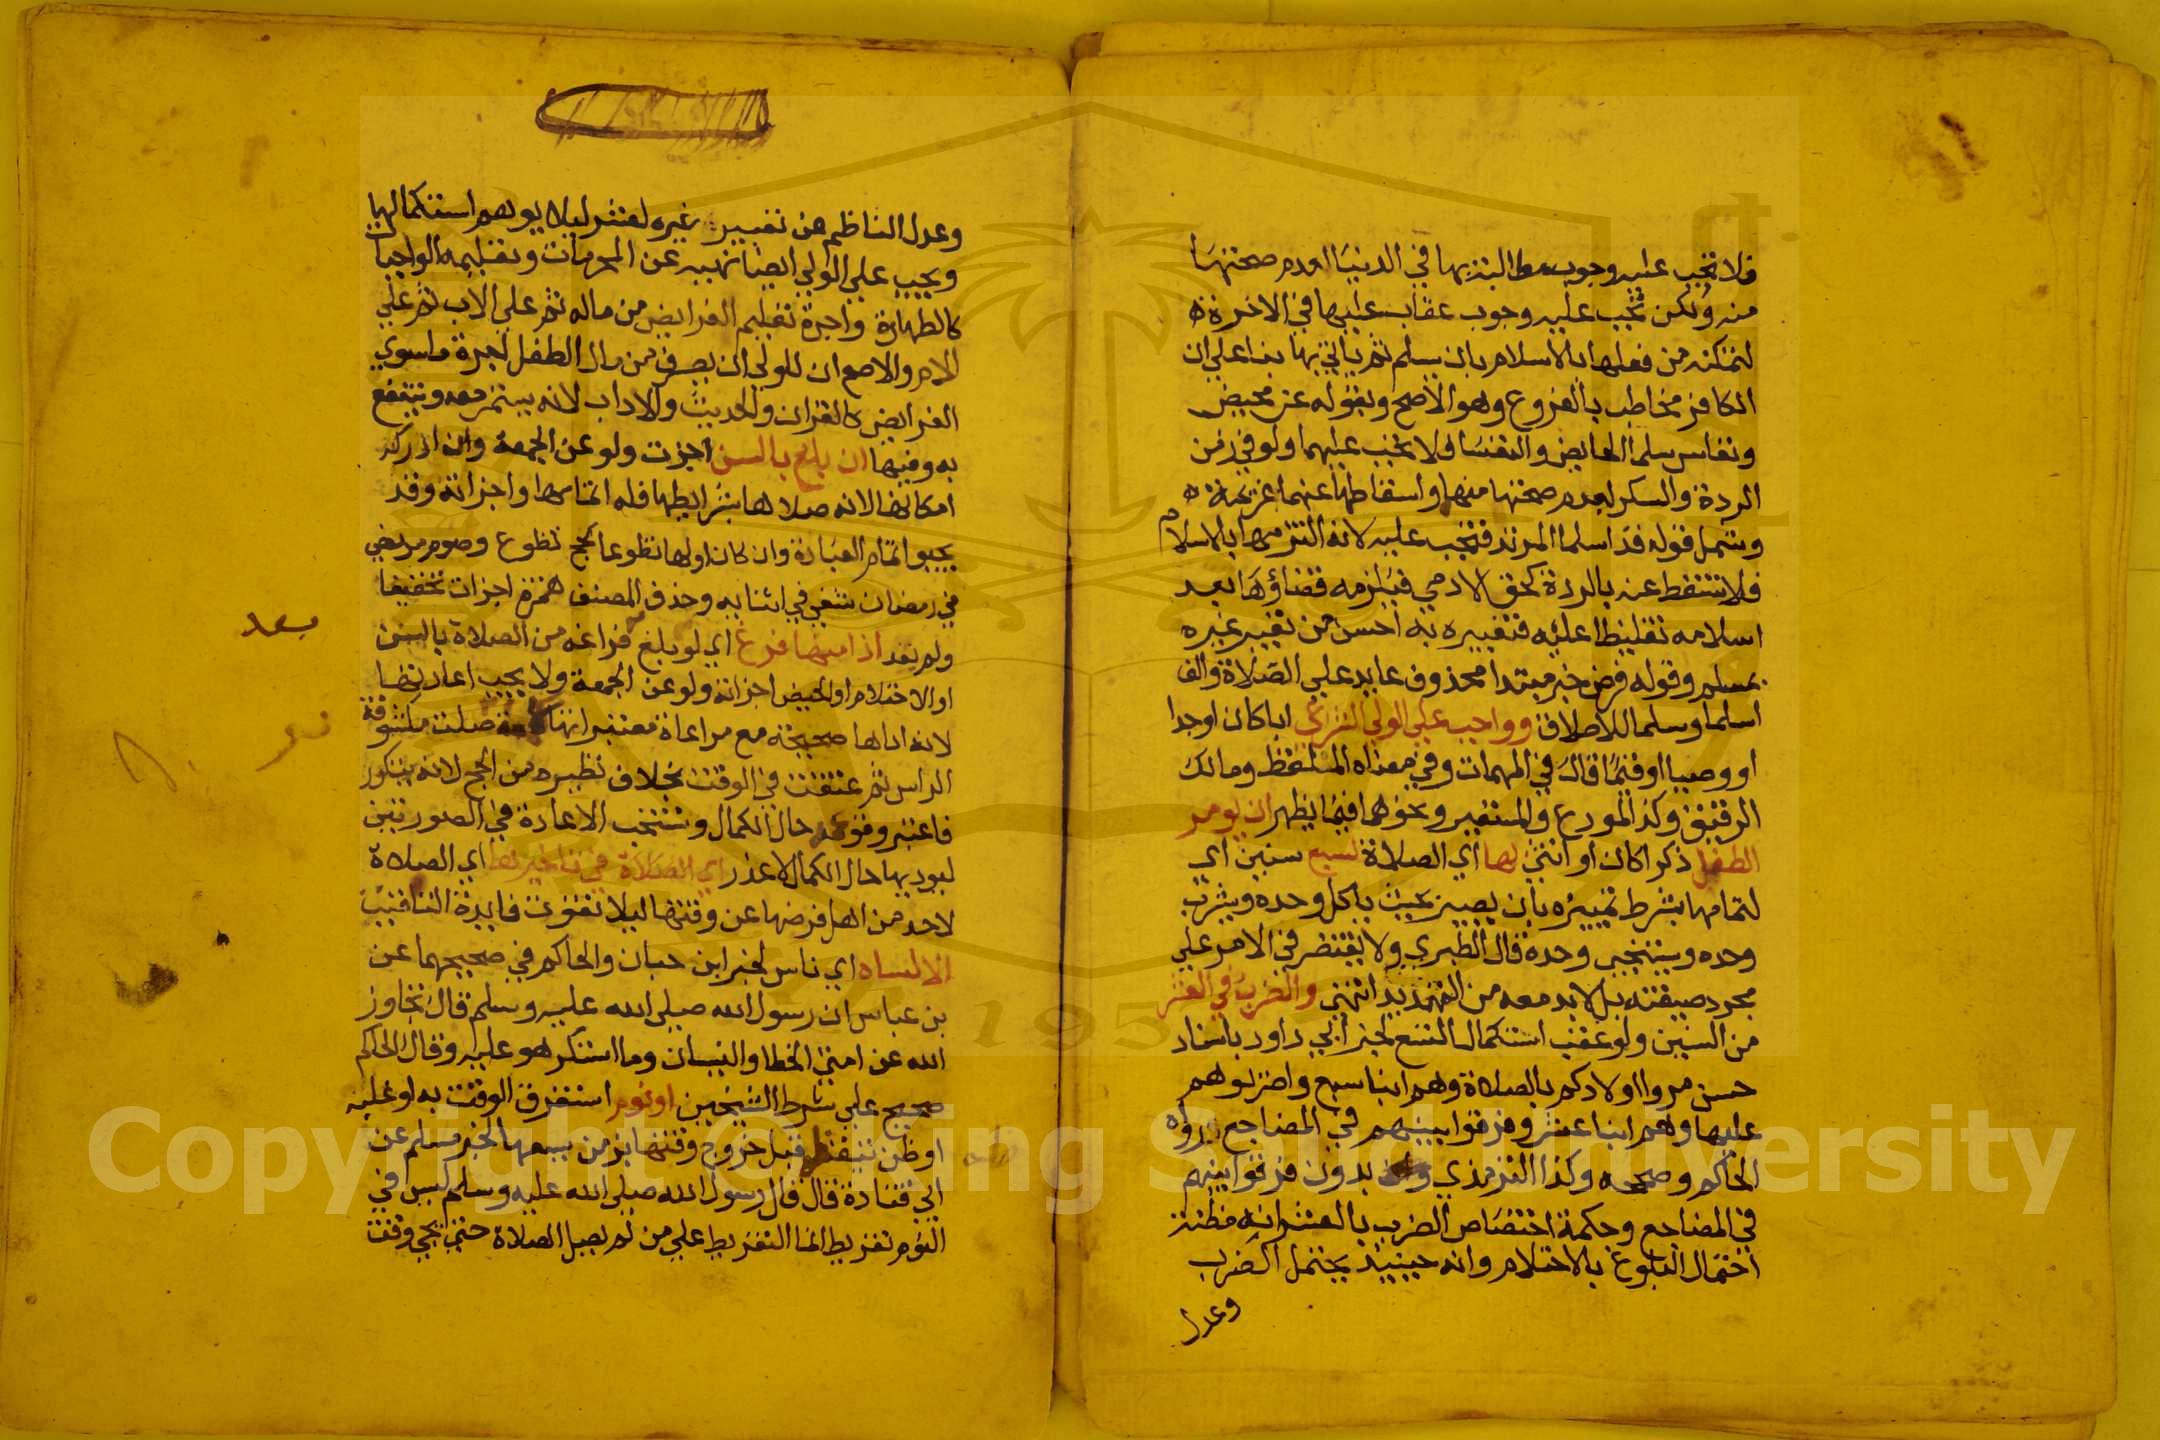 فلا تجب عليه وجوب مطالبة بها في الدنيا لعدم صحتها
منه ولكن تجب عليه وجوب عقاب عليها في الاخرة
لتمكنه من فعلها بالاسلام بان يسلم ثم ياتي بها بنا علي ان
الكافر مخاطب بالفروع وهو الاصح وبقوله عن محيض
ونفاس سلما الحايض والنفسا فلا تجب عليهما ولو في زمن
الردة والسكر لعدم صحتها منهما واسقاطها عنهما عزيمة
وشمل قوله قد اسلما المرتد فتجب عليه لانه التزمها بالاسلام
فلا تسقط عنه بالردة كحق الادمي فيلزمه قضاؤها بعد
اسلامه تغليظا عليه فتعبيره به احسن من تعبير غيره
بمسلم وقوله فرض خبر مبتدا محذوف عايد علي الصلاة والف
اسلما وسلما للاطلاق وواجب علي الولي الشرعي ابا كان او جدا
او وصيا او قيما قال في المهمات وفي معناه الملتقط ومالك
الرقيق وكذا المودع والمستعير ونحوهما فيما يظهر ان يومر
الطفل ذكرا كان او انثي بها اي الصلاة لسبع سنين اي
لتمامها بشرط تمييزه بان يصير بحيث ياكل وحده ويشرب
وحده ويستنجي وحده قال الطبري ولا يقتصر في الامر علي
مجرد صيغته بل لا بد معه من التهديد انتهي والضرب في العشر
من السنين ولو عقب استكمال التسع لخبر ابي داود باسناد
حسن مروا اولادكم بالصلاة وهم ابنا سبع واضربوهم
عليها وهم ابنا عشر وفرقوا بينهم في المضاجع رواه
الحاكم وصححه وكذا الترمذي بدون فرقوا بينهم
في المضاجع وحكمة اختصاص الضرب بالعشر انه مظنة
احتمال البلوغ بالاحتلام وانه حينيذ يحتمل الضرب
وعدل
وعدل الناظم عن تعبير غيره لعشر ليلا يوهم استكمالها
ويجب علي الولي ايضا نهيه عن المحرمات وتعليمه الواجبات
كالطهارة واجرة تعليم الفرايض من ماله ثم علي الاب ثم علي
الام والاصح ان للولي ان يصرف من مال الطفل اجرة ماسوي
الفرايض كالقران والحديث والاداب لانه يستمر معه وينتفع
به وفيها ان بلغ بالسن اجزت ولو عن الجمعة وان ادركه
امكانها لانه صلاها بشرايطها فله اتمامها واجزاته وقد
يجب اتمام العبادة وان كان اولها تطوعا كحج تطوع وصوم مريض
في رمضان شفي في اثنايه وحذف المصنف همزة اجزات تخفيفا
ولم تعد اذا منها فرغ اي لو بلغ فراغه من الصلاة بالسن
بعد
او الاحتلام او الحيض اجزاته ولو عن الجمعة ولا يجب اعادتها
لانه اداها صحيحة مع مراعاة معتبراتها كامة صلت مكشوفة
الراس ثم عتقت في الوقت بخلاف نظيره من الحج لانه يتكرر
فاعتبر وقوعه حال الكمال وتستحب الاعادة في الصورتين
ليوديها حال الكمال لا عذر اي الصلاة في تاخيرها اي الصلاة
لاحد من اهل فرضها عن وقتها ليلا تفوت فايدة التاقيت
الا لساه اي ناس لخبر ابن حبان والحاكم في صحيحهما عن
بن عباس ان رسول الله صلي الله عليه وسلم قال تجاوز
الله عن امتي الخطا والنسيان وما استكرهو عليه وقال الحاكم
صحيح علي شرط الشيخين او نوم استغرق الوقت به او غلبه
او ظن تيقظه قبل خروج وقتها بزمن يسعها لخبر مسلم عن
ابي قتادة قال قال رسول الله صلي الله عليه وسلم ليس في
النوم تفريط انما التفريط علي من لم يصل الصلاة حتي يجي وقت
Copyright © King Saud University
195